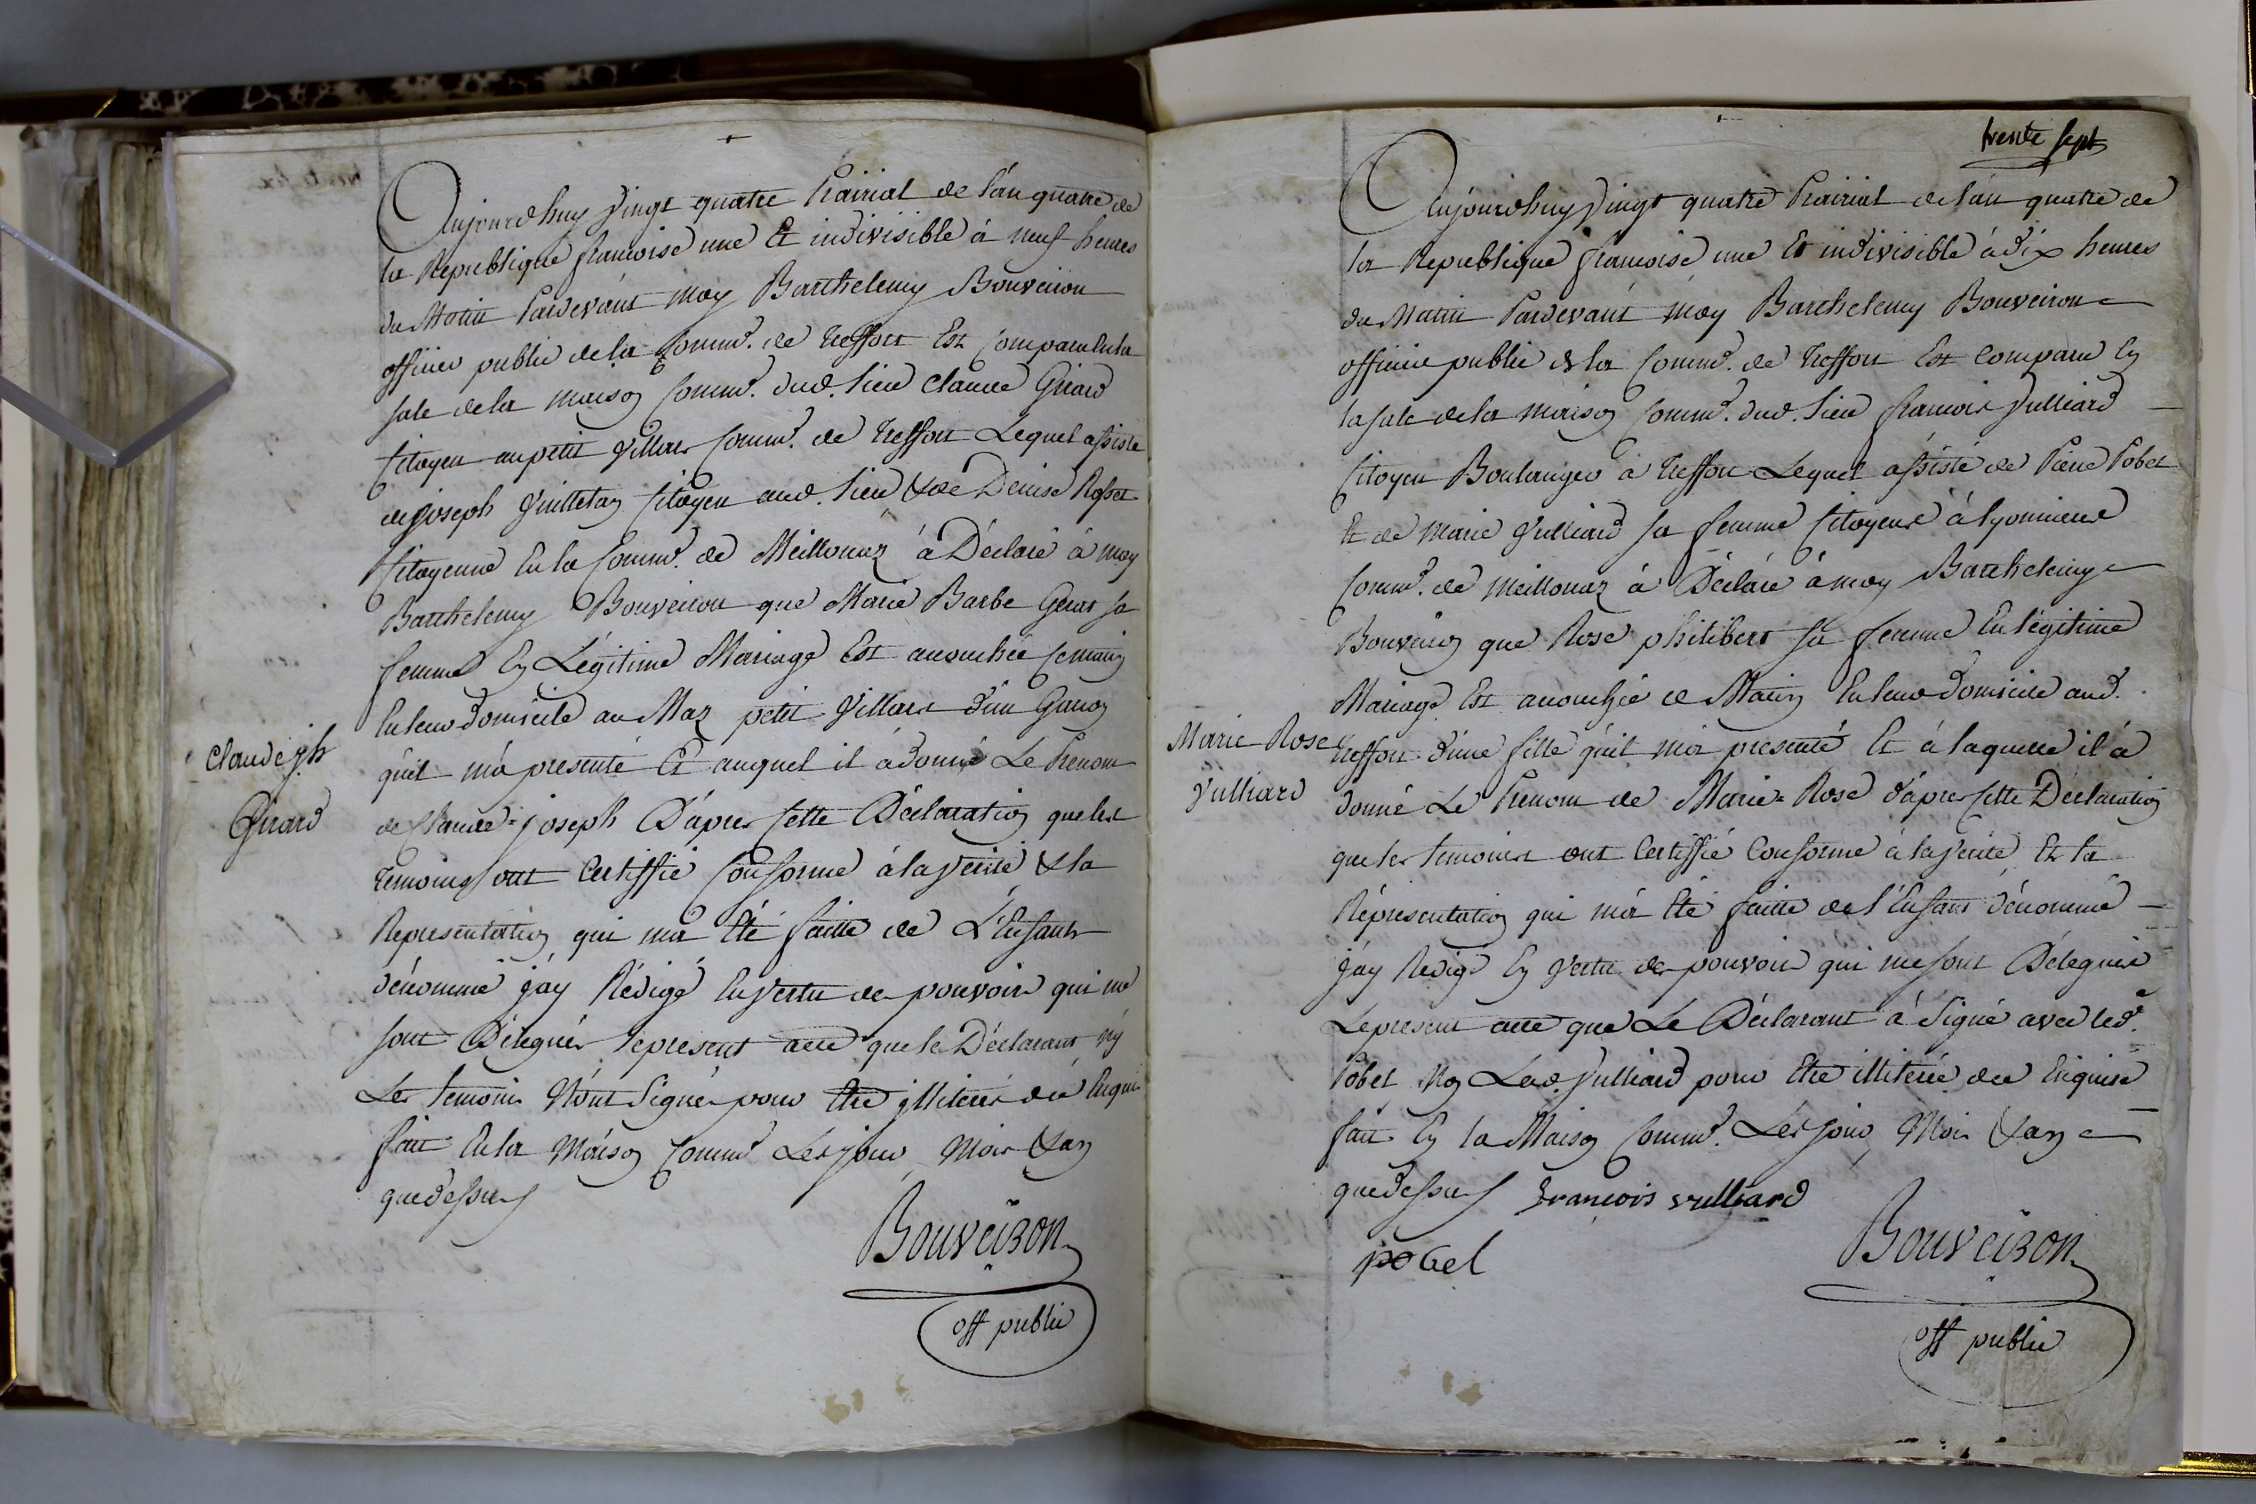 Aujourdhuy Vingt quatre Prairial de l'an quatre de
la Republique francoise une Et indivisible à neuf heures
du Matin Pardevant moy Barthelemy Bouveiron
officier public de la Comm.e de Treffort Est Comparu En la
sale de la maison Comm.e dud. lieu Claude Girard
Citoyen au petit Villars Comm.e de Treffort Lequel assisté
de Joseph Vuilletan Citoyen aud. lieu & de Denise Rosset
Citoyenne En la Comm.e de Meillonaz à Déclaré à moy
Barthelemy Bouveiron que Marie Barbe sa
femme En Légitime Mariage Est accouchée ce matin
En leur domicile au Maz petit Villars d'un Garcon
Claude jph
Girard
qu'il m'à presenté Et auquel il à donné Le Prenom
de Claude-joseph D'après Cette Déclaration que les
temoins ont Certiffié Conforme à la Verité & la
Representation qui m'à Eté faitte de L'Enfant
dénommé j'ay Rédigé En Vertu des pouvoirs qui me
sont Délégués le present acte que le Déclarant n'y
Les temoins N'ont Signés pour Etre illiterés de ce Enquis
fait En la Maison Comm.e Les jour Mois & an
que dessus
Bouveiron
off public
trente sept
Aujourdhuy Vingt quatre Prairial de l'an quatre de
la Republique francoise une Et indivisible à dix heures
du Matin Pardevant moy Barthelemy Bouveiron
officier public de la Comm.e de Treffort Est Comparu En
la sale de la maison Comm.e dud. lieu francois Vulliard
Citoyen Boulanger à Treffort Lequel assisté de Piere Pobel
Et de Marie Vulliard sa femme Citoyens à Lyonniere
Comm.e de Meillonaz à Déclaré à moy Barthelemy
Bouveiron que Rose philibert sa femme En légitime
Mariage Est accouchée ce Matin En leur Domicile aud.
Marie Rose
Vulliard
Treffort d'une fille qu'il m'à presenté Et à laquelle il à
donné Le Prenom de Marie-Rose d'après Cette Déclaration
que les temoins ont Certiffié Conforme à la Verité Et la
Répresentation qui m'à Eté faitte de l'Enfant dénommé
j'ay Redigé En Vertu des pouvoirs qui me sont Délegués
Le present acte que Le Déclarant à Signé avec led.
Pobel Non Lad Vulliard pour Etre illiterée de ce Enquise
fait En la Maison Comm.e Les jour, Mois & an
que dessus francois vulliard
pobel
Bouveiron
off public